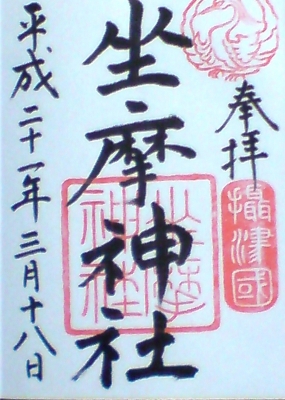 奉拝
攝津國
坐摩神社
坐摩
神社
平成二十一年三月十八日